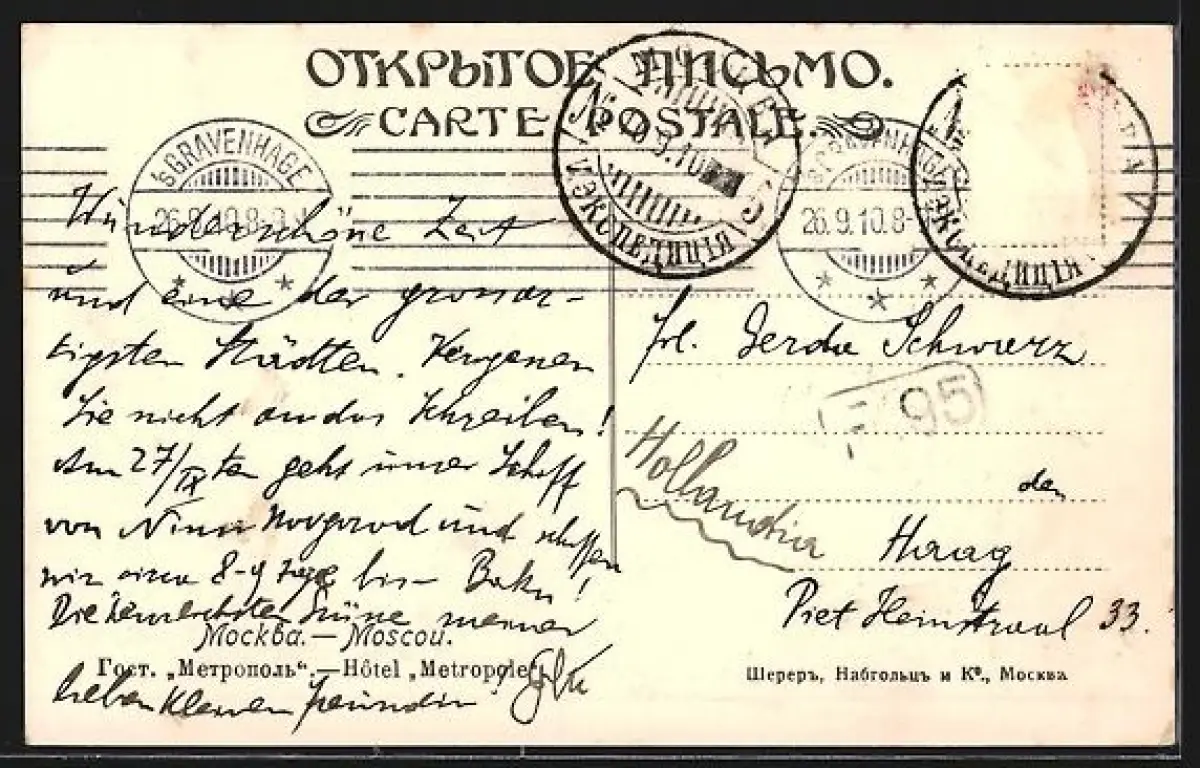 ОТКРЫТОЕ ПИСЬМО.
CARTE POSTALE.
'sGRAVENHAGE
26.9.10.8-
26.9.10.8-
9.10
ЭКСПЕДИЦІЯ
Wunderschöne Zeit
und eine der grossar-
tigsten Städten. Vergessen
Sie nicht an das Schreiben!
Am 27/IX ten geht unser Schiff
von Novgorod und
wir circa 8-9 Tage bis Baku!
Die meiner
lieben kleinen Freundin
Frl. Gerda Schwarz
F 95
Hollandia
den
Haag
Piet Heinstraat 33.
Москва.— Moscou.
Гост. „Метрополь“.—Hôtel „Metropole“.
Шереръ, Набгольцъ и Кº., Москва